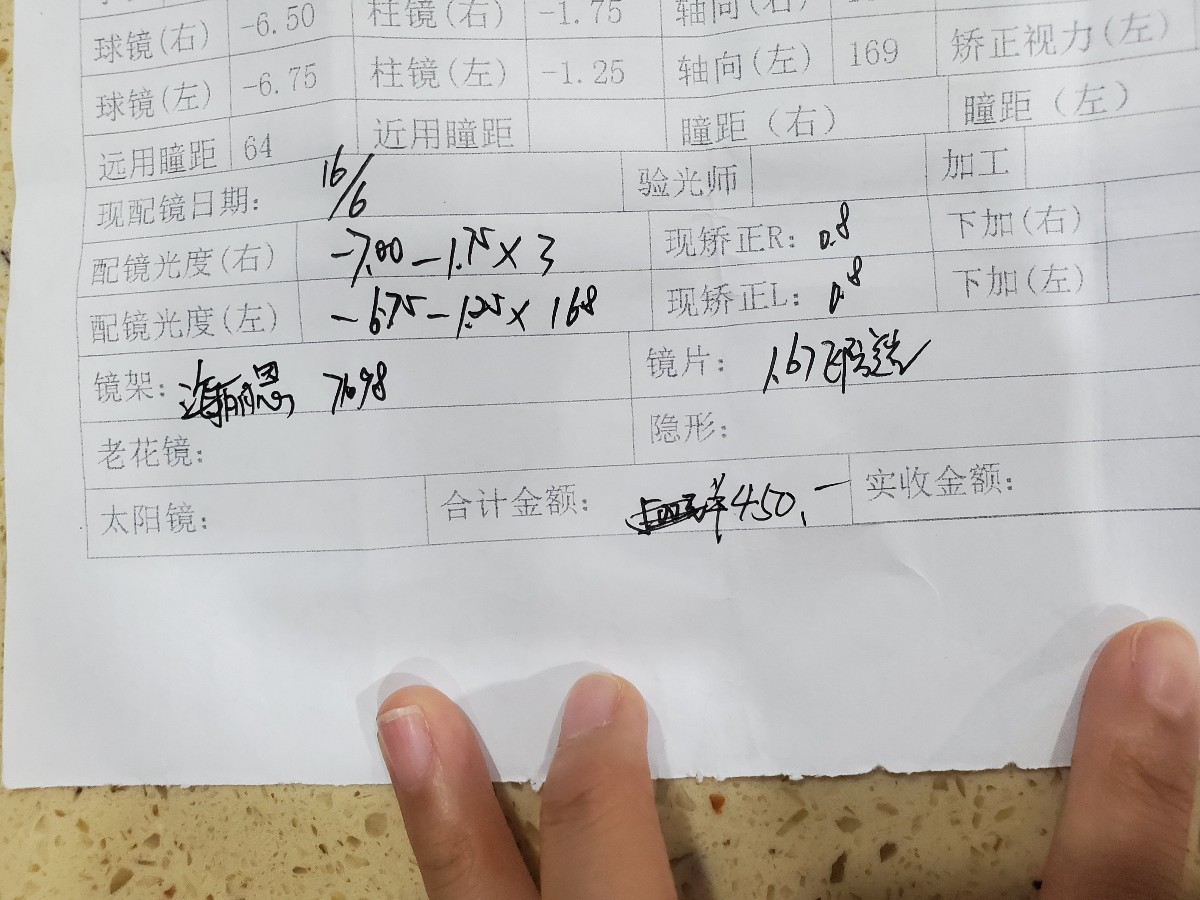 球镜(右) -6.50 柱镜(右) -1.75 轴向(右)
球镜(左) -6.75 柱镜(左) -1.25 轴向(左) 169 矫正视力(左)
远用瞳距 64 近用瞳距 瞳距（右） 瞳距（左）
现配镜日期: 16/6 验光师 加工
配镜光度(右) -7.00 -1.75 × 3 现矫正R: 0.8 下加(右)
配镜光度(左) -6.75 -1.25 × 168 现矫正L: 0.8 下加(左)
镜架: 海丽恩 7698 镜片: 1.67
老花镜: 隐形:
太阳镜: 合计金额: 450.- 实收金额: